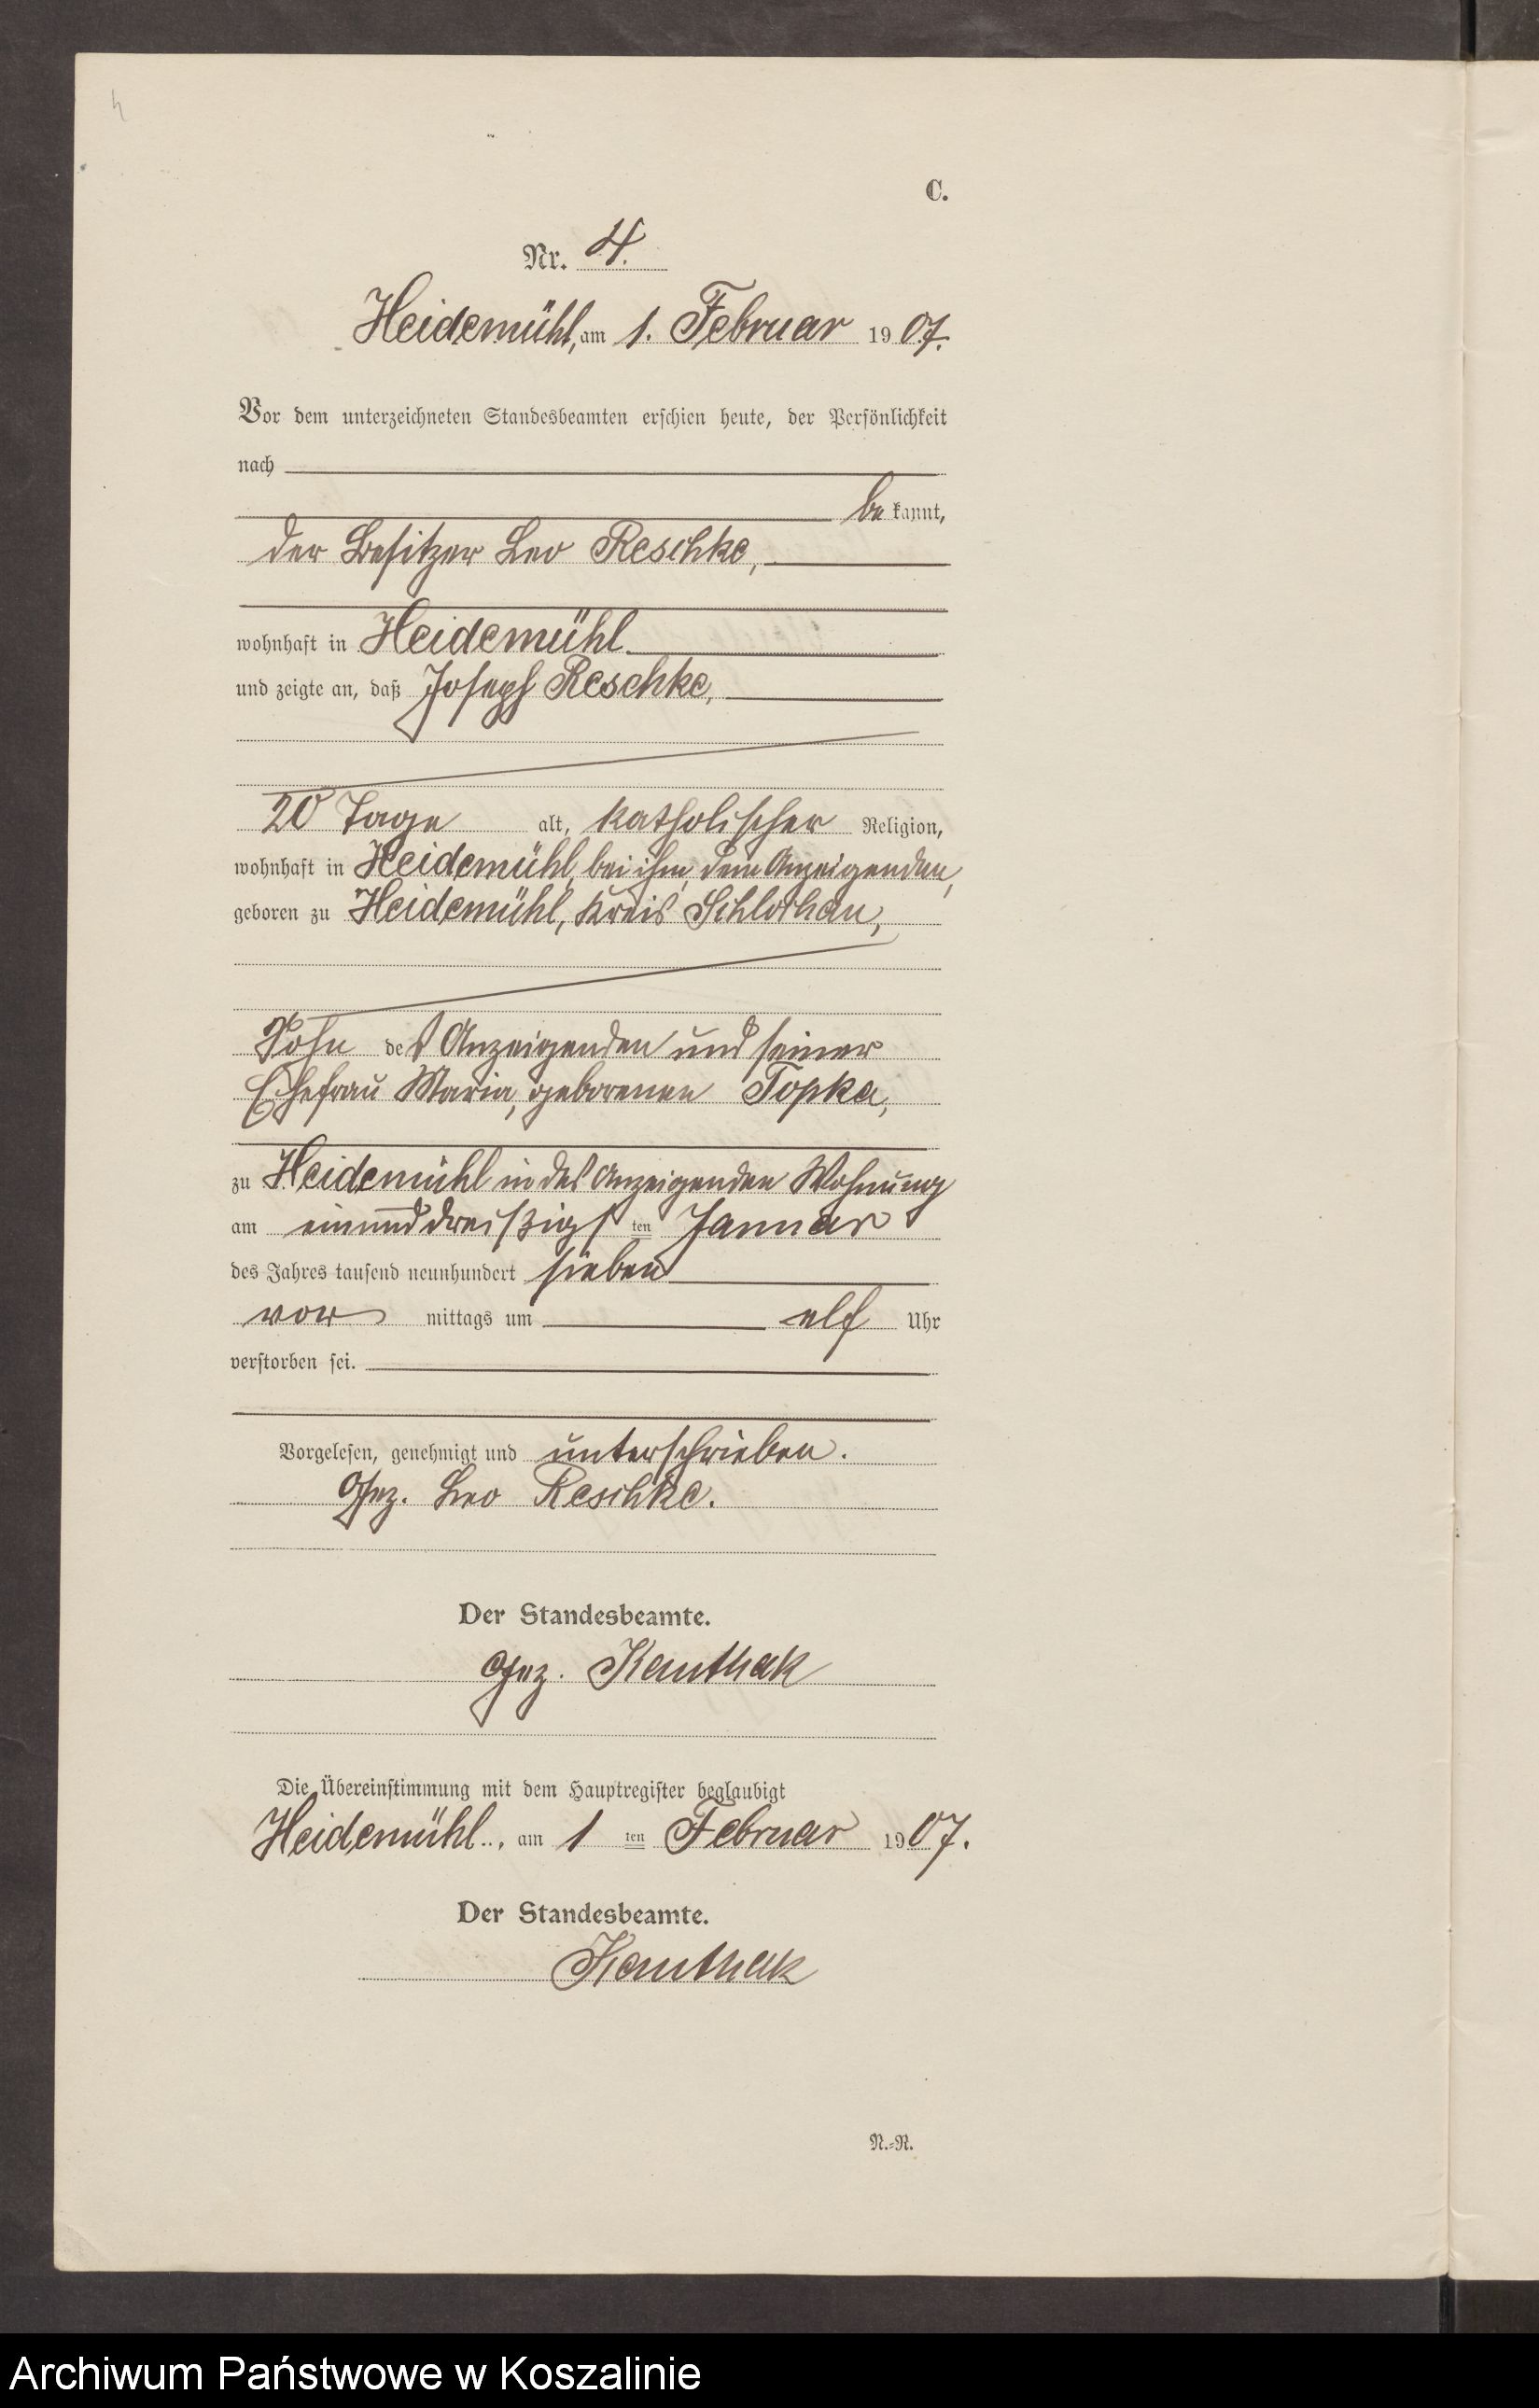 4
C.
Nr. 4.
Heidemühl, am 1. Februar 1907.
Vor dem unterzeichneten Standesbeamten erschien heute, der Persönlichkeit
nach
bekannt,
der Besitzer Leo Reschke,
wohnhaft in Heidemühl
und zeigte an, daß Joseph Reschke,
20 Tage alt, katholischer Religion,
wohnhaft in Heidemühl, bei ihm, dem Anzeigenden,
geboren zu Heidemühl, Kreis Schlochau,
Sohn des Anzeigenden und seiner
Ehefrau Maria, geborenen Topka,
zu Heidemühl in des Anzeigenden Wohnung
am einunddreißigsten Januar
des Jahres tausend neunhundert sieben
vor mittags um elf Uhr
verstorben sei.
Vorgelesen, genehmigt und unterschrieben.
Gez. Leo Reschke.
Der Standesbeamte.
Gez. Kauthak
Die Übereinstimmung mit dem Hauptregister beglaubigt
Heidemühl, am 1ten Februar 1907.
Der Standesbeamte.
Kauthak
N.-R.
Archiwum Państwowe w Koszalinie